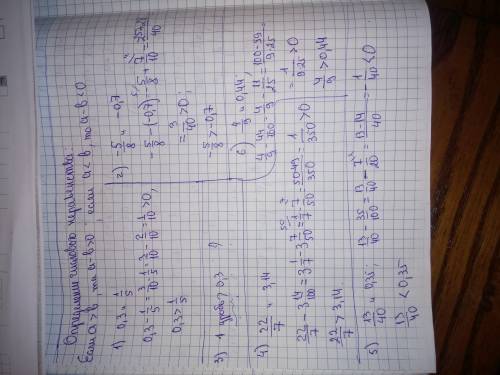 Определим числовые неравенства:
Если a > b, то a-b>0, если a < b, то a-b < 0
1) 0,3 и 1/5
0,3 - 1/5 = 3/10 - 1/5 = 3/10 - 2/10 = 1/10 > 0,
0,3 > 1/5
2) -5/8 и -0,7
-5/8 - (-0,7) = -5/8 + 7/10 =
= 3/40 > 0;
-5/8 > -0,7
3) 1 0,3 ?
4) 22/7 и 3,14
22/7 - 3 14/100 = 3 1/7 - 3 7/50 = 1/7 - 7/50 = 50-49/350 = 1/350 > 0
22/7 > 3,14
6) 4/9 и 0,44
4/9 - 44/100 = 4/9 - 11/25 = 100-99/9·25 =
= 1/9·25 > 0
4/9 > 0,44
5) 13/40 и 0,35; 13/40 - 35/100 = 13/40 - 7/20 = 13-14/40 = -1/40 < 0
13/40 < 0,35